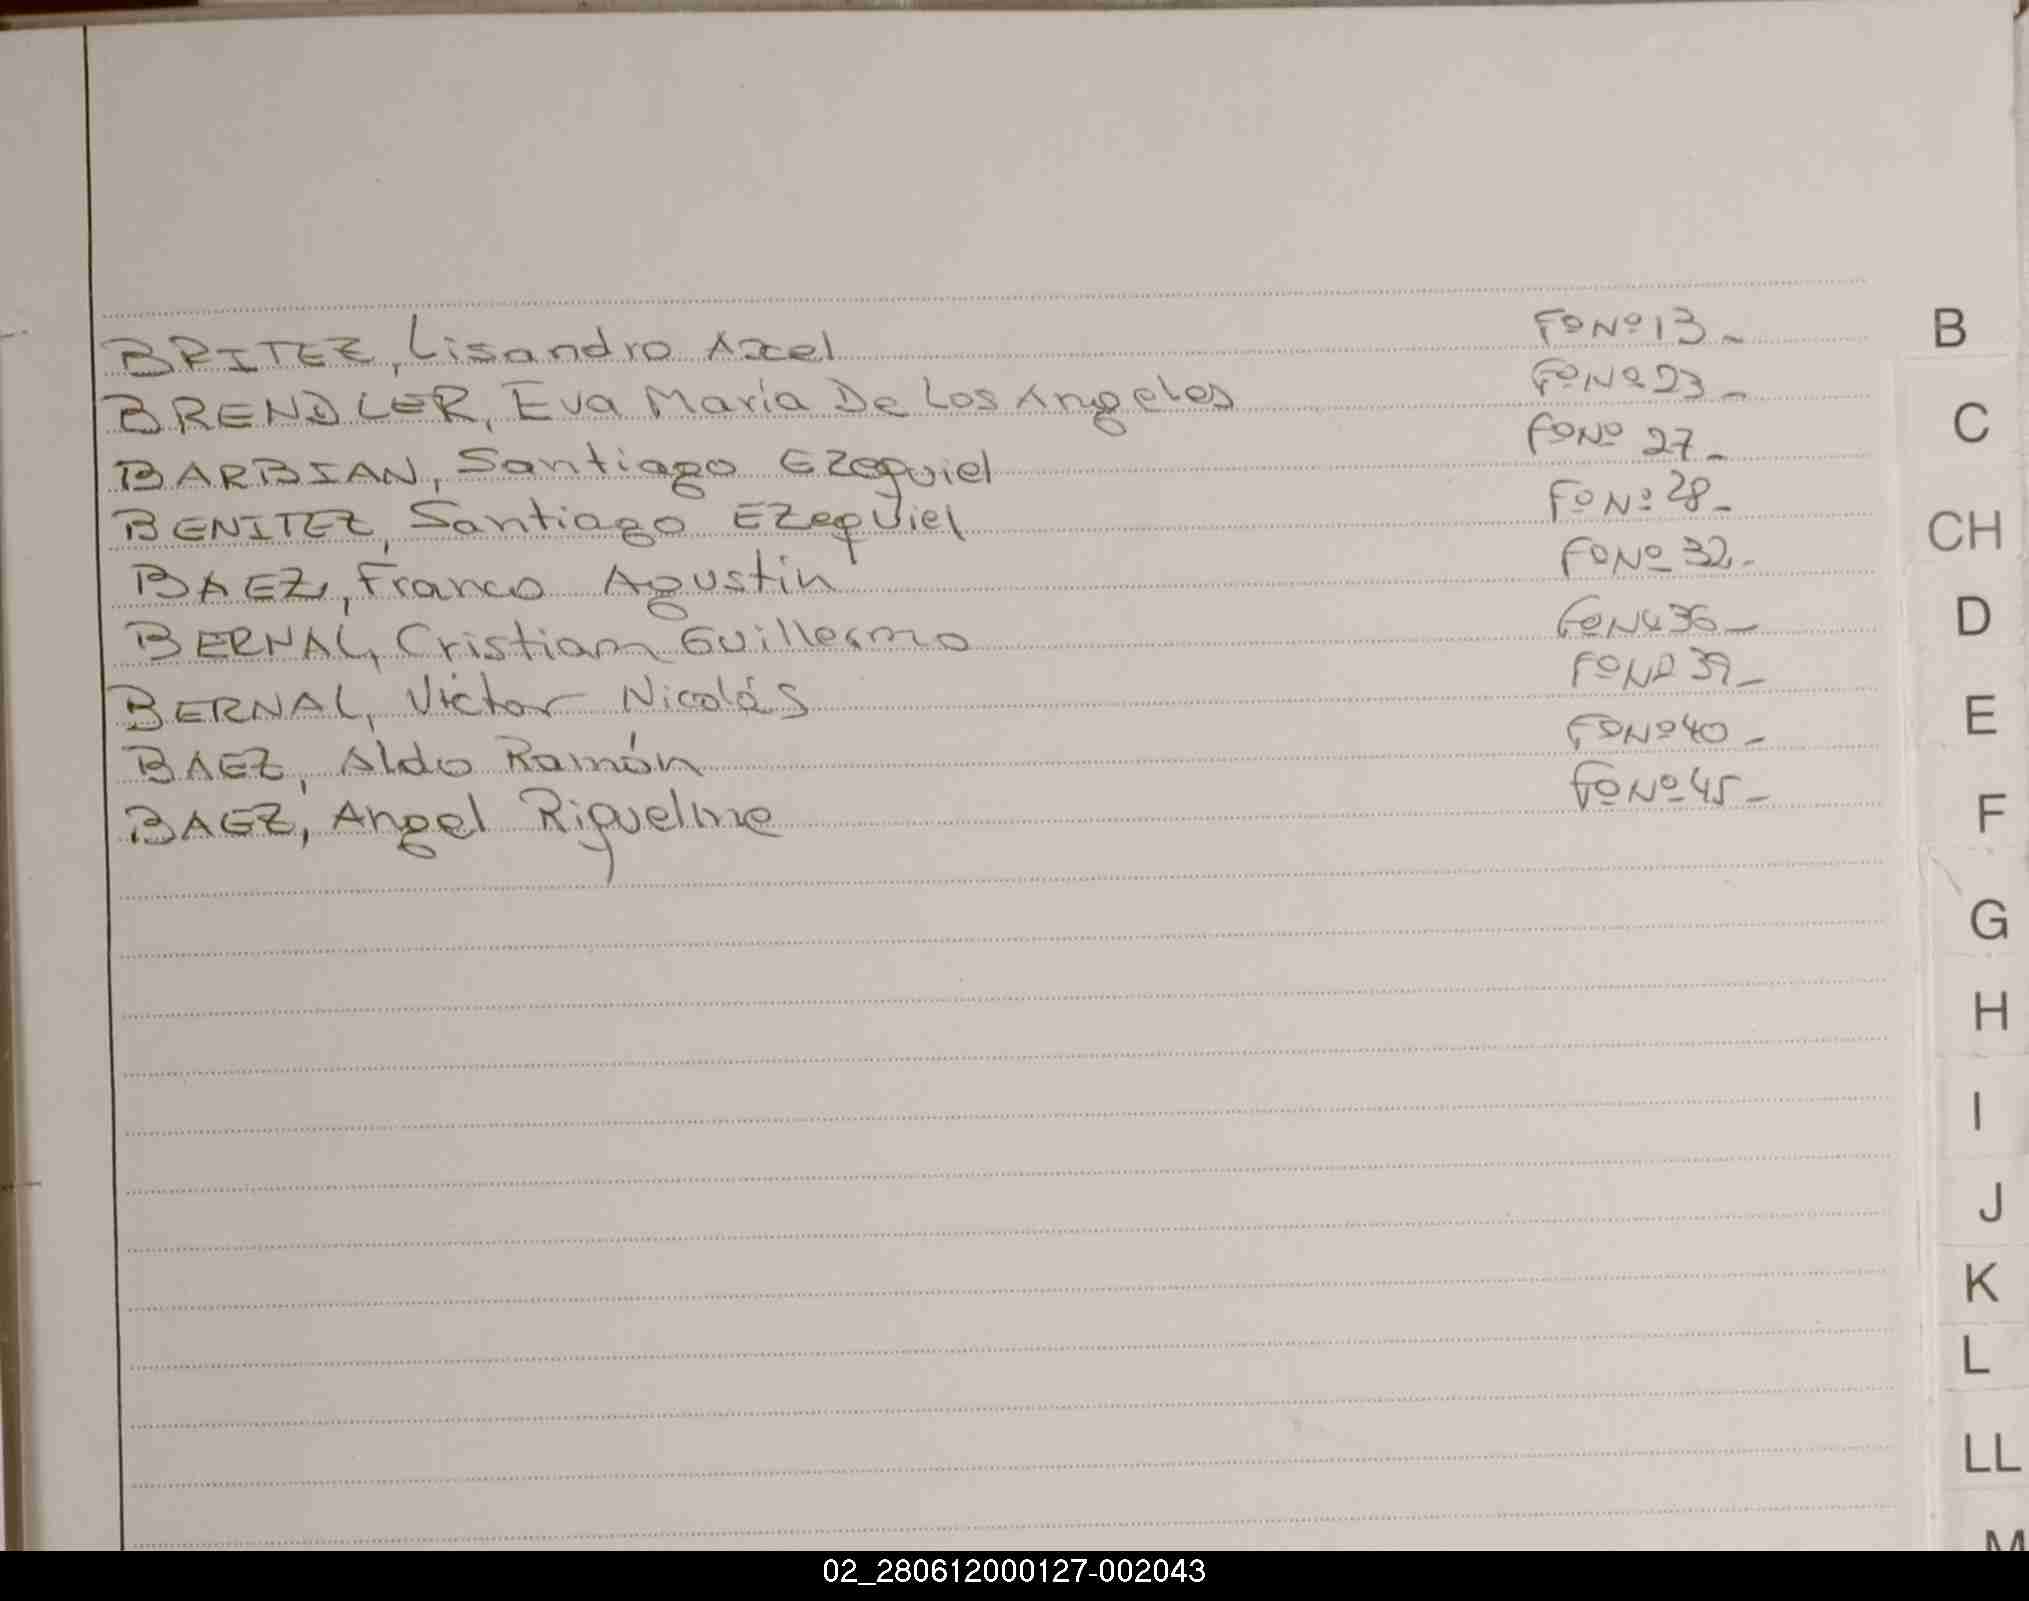 BRITEZ, Lisandro Axel Fº Nº 13 -
BRENDLER, Eva María De Los Angeles Fº Nº 23 -
BARBIAN, Santiago Ezequiel Fº Nº 27 -
BENITEZ, Santiago EZequiel Fº Nº 28 -
BAEZ, Franco Agustín Fº Nº 32 -
BERNAL, Cristiam Guillermo Fº Nº 36 -
BERNAL, Víctor Nicolás Fº Nº 39 -
BAEZ, Aldo Ramón Fº Nº 40 -
BAEZ, Angel Riquelme Fº Nº 45 -
B
C
CH
D
E
F
G
H
I
J
K
L
LL
M
02_280612000127-002043